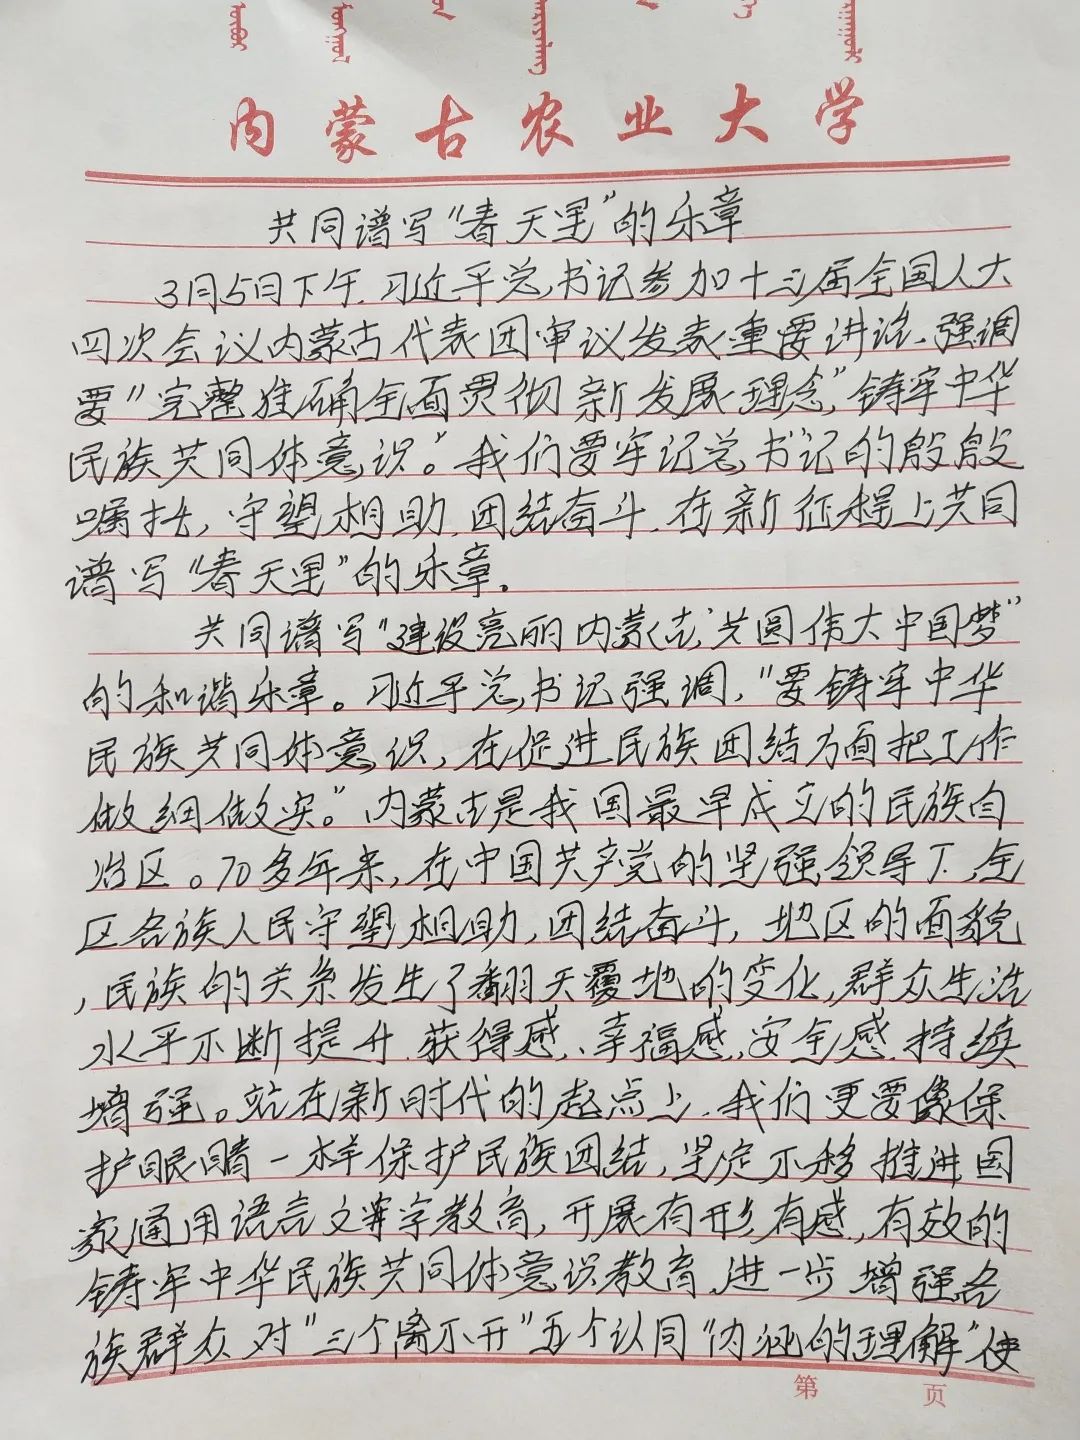 内蒙古农业大学
共同谱写“春天里”的乐章
3月5日下午,习近平总书记参加十三届全国人大
四次会议内蒙古代表团审议发表重要讲话、强调
要“完整准确全面贯彻新发展理念”,铸牢中华
民族共同体意识”。我们要牢记总书记的殷殷
嘱托,守望相助,团结奋斗,在新征程上共同
谱写“春天里”的乐章.
共同谱写“建设亮丽内蒙古,共圆伟大中国梦”
的和谐乐章。习近平总书记强调,“要铸牢中华
民族共同体意识,在促进民族团结方面把工作
做细做实。”内蒙古是我国最早成立的民族自
治区。70多年来,在中国共产党的坚强领导下,全
区各族人民守望相助,团结奋斗,地区的面貌
,民族的关系发生了翻天覆地的变化,群众生活
水平不断提升,获得感、幸福感、安全感,持续
增强。站在新时代的起点上,我们更要像保
护眼睛一样保护民族团结,坚定不移推进国
家通用语言文字教育,开展有形,有感,有效的
铸牢中华民族共同体意识教育,进一步增强各
族群众对“三个离不开”五个认同“内涵的理解”使
第 页